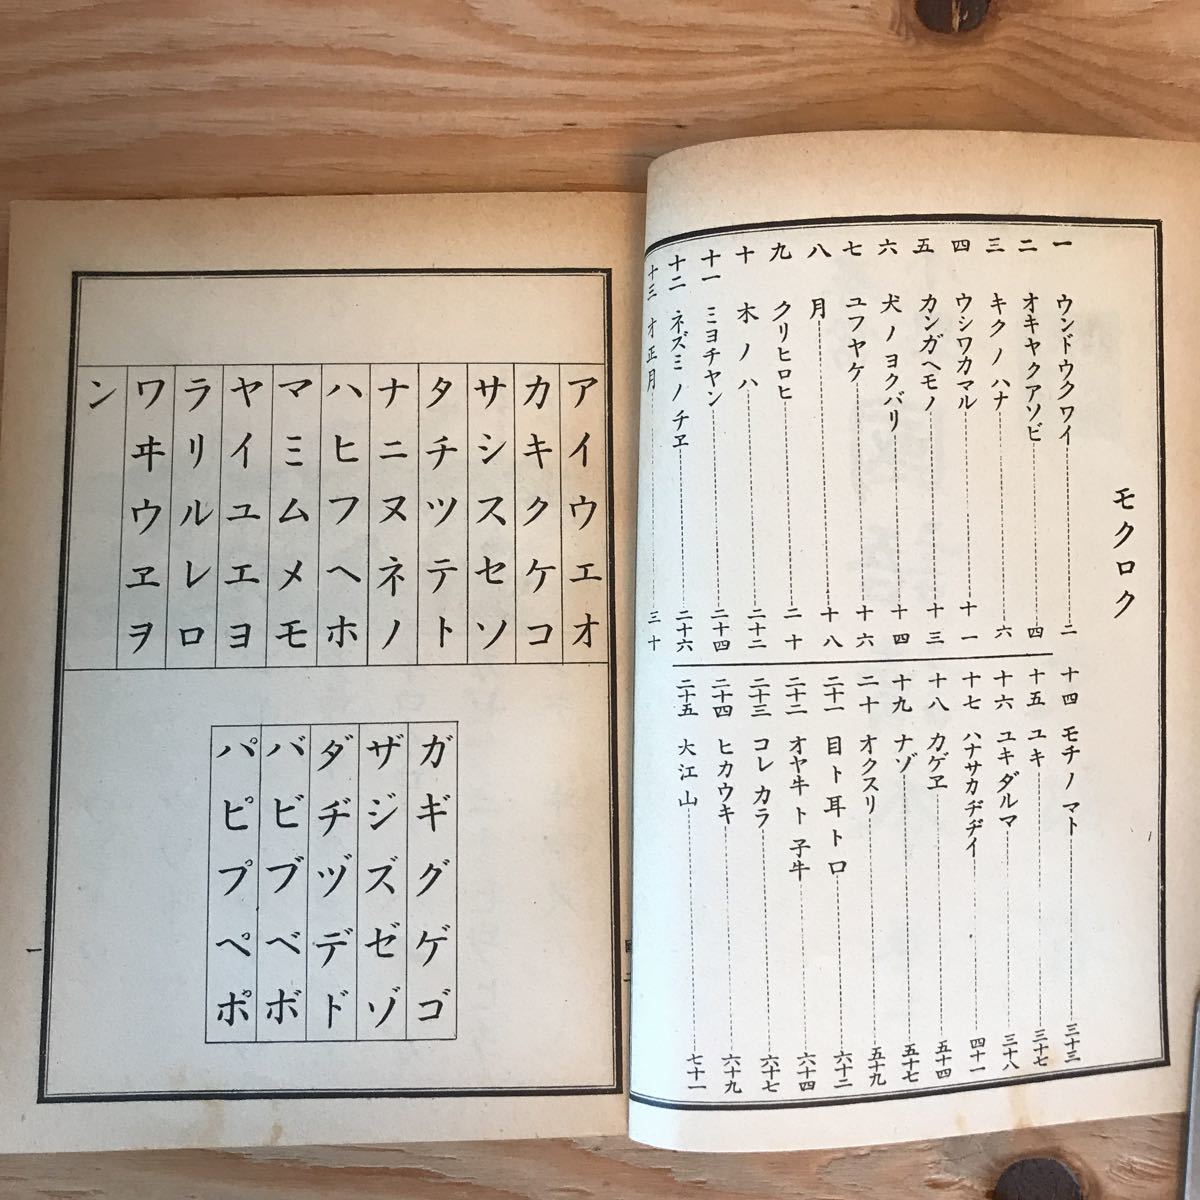 モクロク
一 ウンドウクワイ 二
二 オキヤクアソビ 四
三 キクノハナ 六
四 ウシワカマル 十一
五 カンガヘモノ 十三
六 犬ノヨクバリ 十四
七 ユフヤケ 十六
八 月 十八
九 クリヒロヒ 二十
十 木ノハ 二十二
十一 ミヨチヤン 二十四
十二 ネズミノチヱ 二十六
十三 オ正月 三十
十四 モチノマト 三十三
十五 ユキ 三十七
十六 ユキダルマ 三十八
十七 ハナサカヂヂイ 四十一
十八 カゲヱ 五十四
十九 ナゾ 五十七
二十 オクスリ 五十九
二十一 目ト耳ト口 六十二
二十二 オヤ牛ト子牛 六十四
二十三 コレカラ 六十七
二十四 ヒカウキ 六十九
二十五 大江山 七十一
アイウエオ
カキクケコ
サシスセソ
タチツテト
ナニヌネノ
ハヒフヘホ
マミムメモ
ヤイユエヨ
ラリルレロ
ワヰウヱヲ
ン
ガギグゲゴ
ザジズゼゾ
ダヂヅデド
バビブベボ
パピプペポ
一